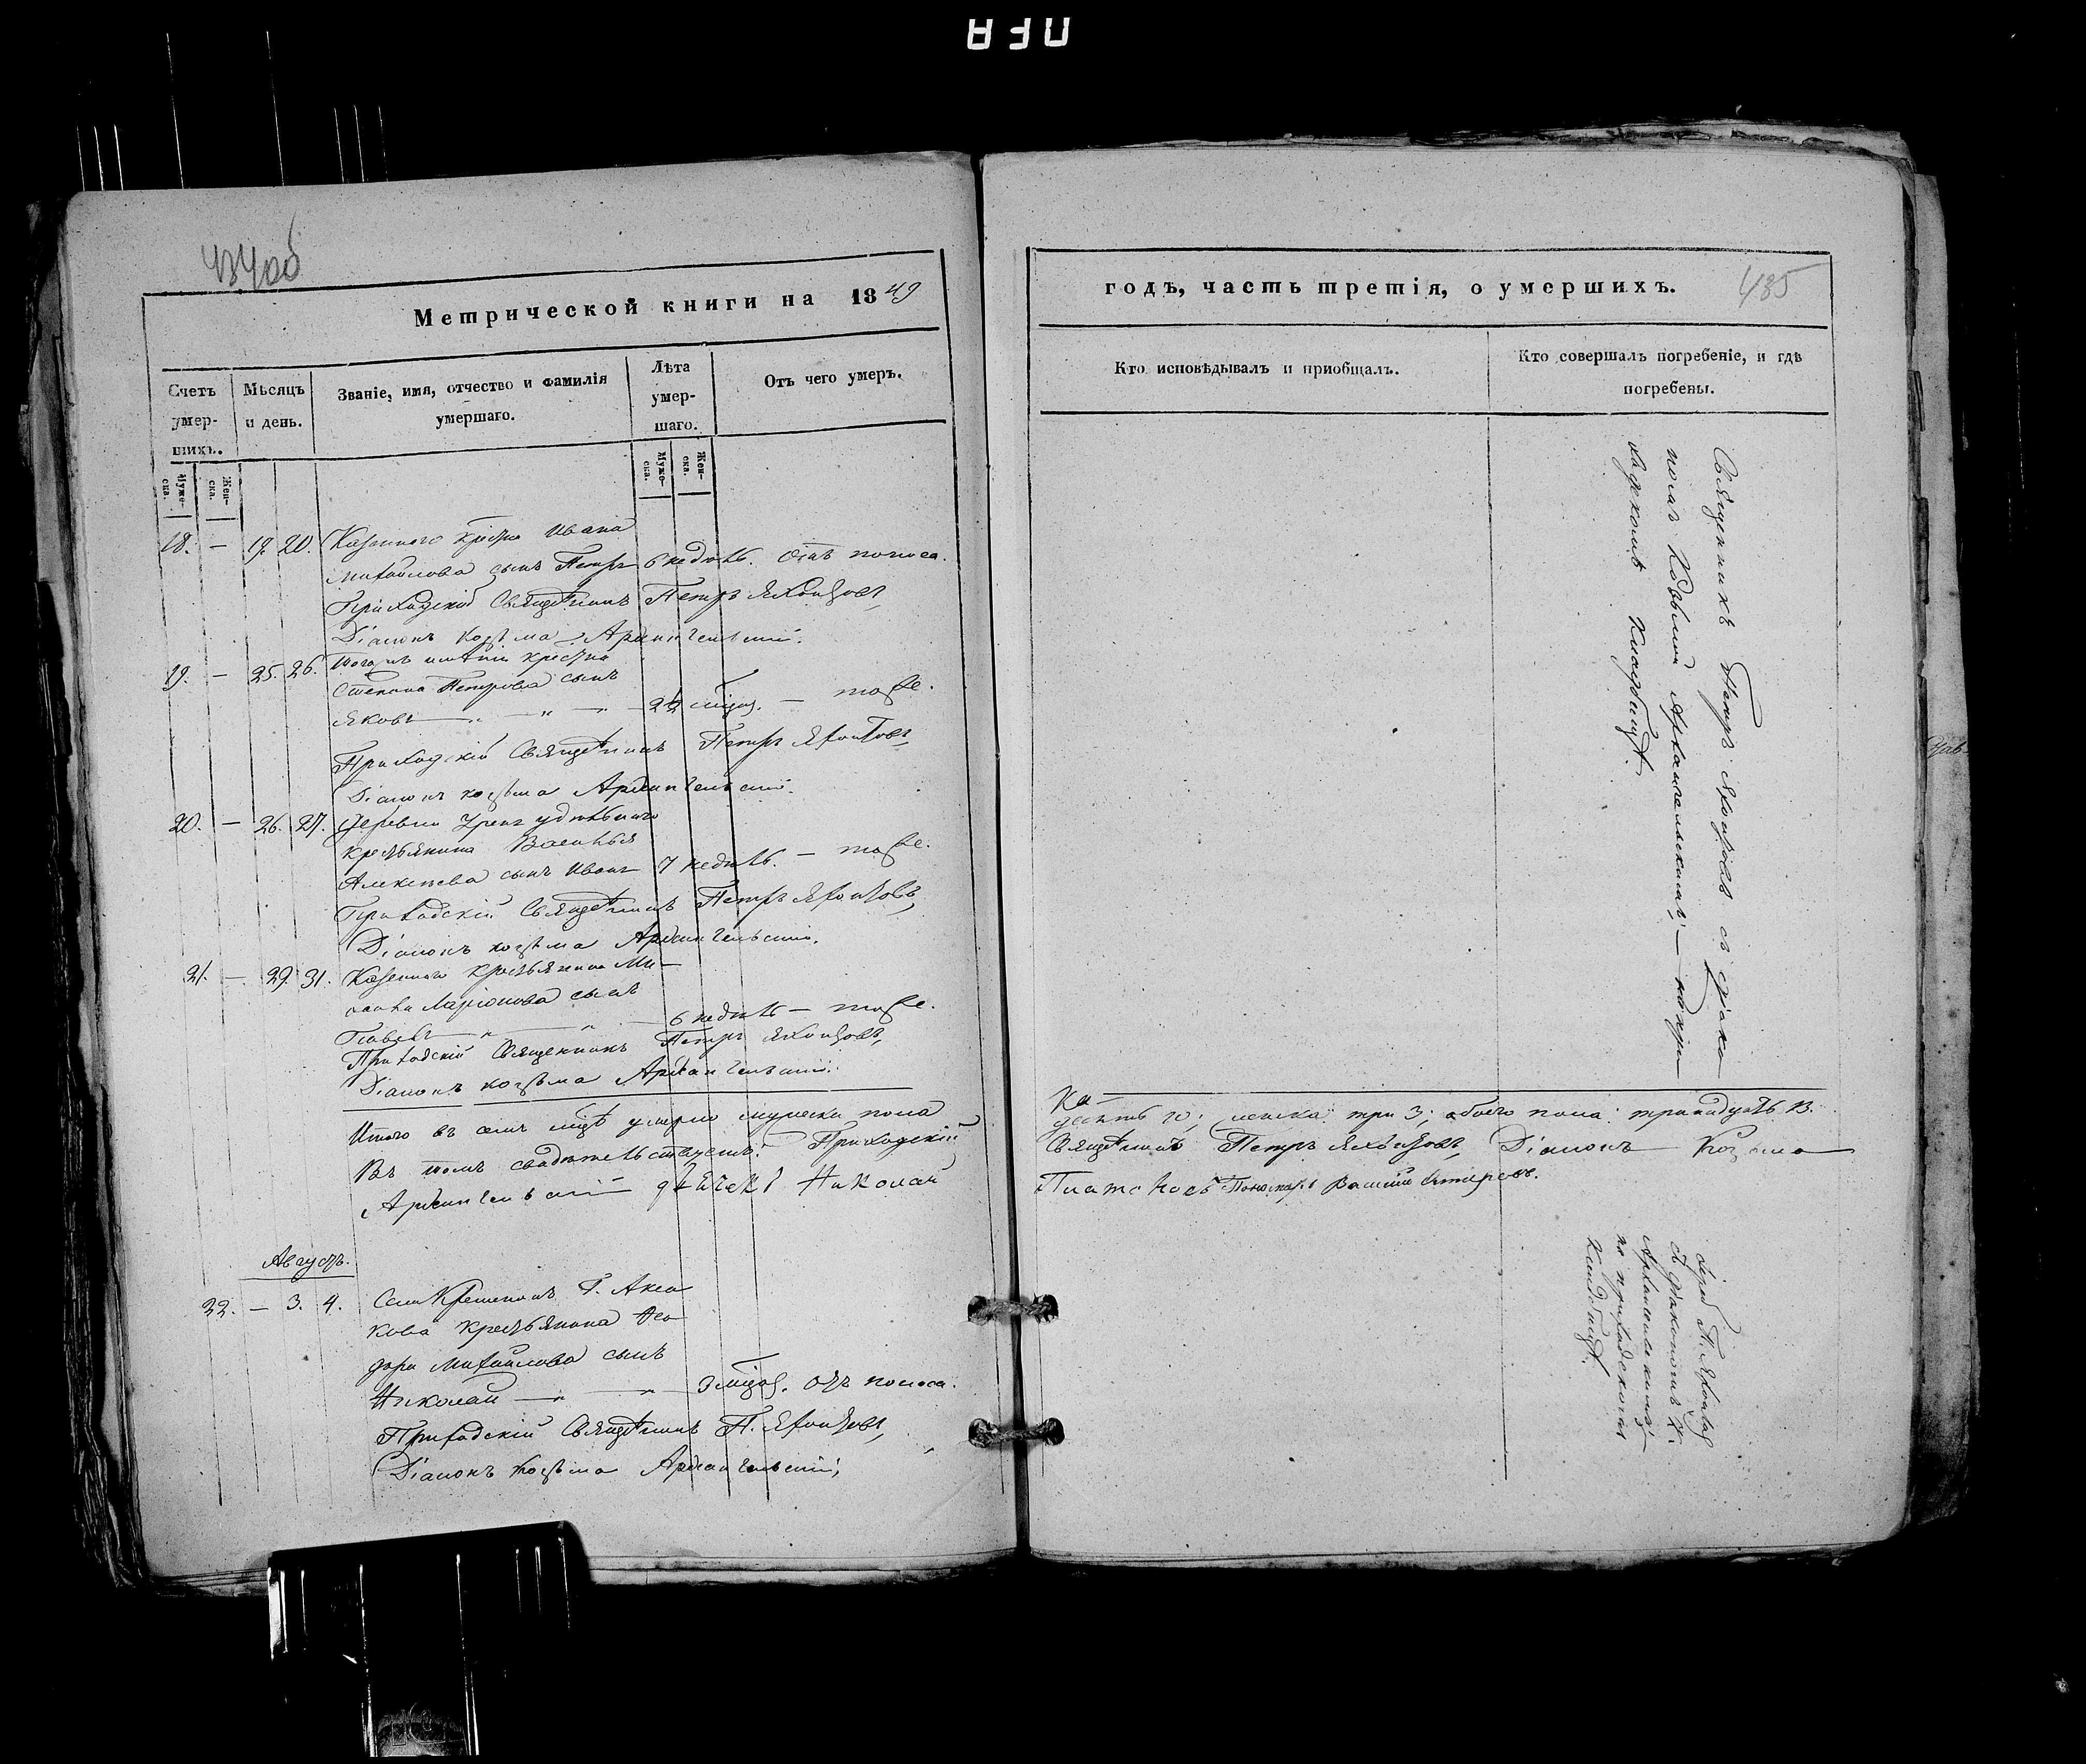 434об
Метрической книги на 1849
Счетъ умершихъ.
Мѣсяцъ и день.
Званіе, имя, отчество и фамилія умершаго.
Лѣта умершаго.
Отъ чего умеръ.
Муже-ска.
Жен-ска.
Муже-ска.
Жен-ска.
18. — 19. 20. Казеннаго крестна Ивана
Михайлова сынъ Петръ 6 недѣль. Отъ поноса.
Приходскій Священникъ Петръ Яхонтовъ,
Діаконъ Козьма Архангельскій.
19. — 25. 26. крестна
Степана Петрова сынъ
Яковъ — „ — „ — 2½ — тоже.
Приходскій Священникъ Петръ Яхонтовъ,
Діаконъ Козьма Архангельскій.
20. — 26. 27. Деревни удѣльнаго
крестьянина Василья
Алексѣева сынъ Иванъ 7 недѣль. — тоже.
Приходскій Священникъ Петръ Яхонтовъ,
Діаконъ Козьма Архангельскій.
21. — 29. 31. Казеннаго крестьянина Ми-
Ларіонова сынъ
Павелъ — „ — „ — 6 недѣль — тоже.
Приходскій Священникъ Петръ Яхонтовъ,
Діаконъ Козьма Архангельскій.
Итого въ семъ умерло мужеска пола
Въ томъ свидѣтельствуемъ: Приходскій
Архангельскій дьячекъ Николай
Августъ.
22. — 3. 4. Села Г. Акса-
кова крестьянина Ѳео-
дора Михайлова сынъ
Николай — „ — „ — 3 Отъ поноса.
Приходскій Священникъ П. Яхонтовъ,
Діаконъ Козьма Архангельскій,
годъ, часть третія, о умершихъ.
435
Кто исповѣдывалъ и пріобщалъ.
Кто совершалъ погребеніе, и гдѣ погребены.
Священникъ Петръ Яхонтовъ съ діако-
номъ Козьмой Архангельскимъ — на при-
ходскомъ кладбищѣ.
десять 10; женска: три 3; обоего пола: тринадцать 13.
Священникъ Петръ Яхонтовъ, Діаконъ Козьма
Платоновъ Пономарь
Іерей П. Яхонтовъ
съ діакономъ К.
Архангельскимъ
на приходскомъ
кладбищѣ.